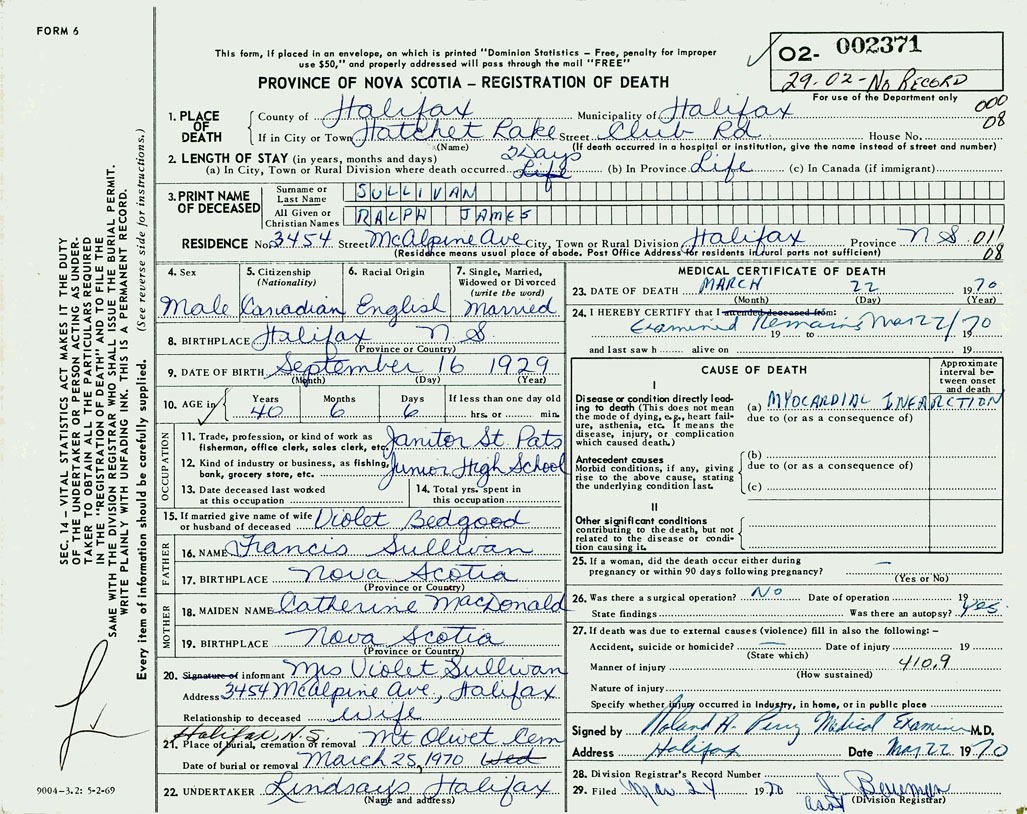 FORM 6
This form, if placed in an envelope, on which is printed "Dominion Statistics – Free, penalty for improper
use $50," and properly addressed will pass through the mail "FREE"
PROVINCE OF NOVA SCOTIA – REGISTRATION OF DEATH
O2- 002371
29-02-No RECORD
For use of the Department only
000
08
1. PLACE OF DEATH
County of Halifax Municipality of Halifax
If in City or Town Hatchet Lake Street Club Rd House No.
(Name) (If death occurred in a hospital or institution, give the name instead of street and number)
2. LENGTH OF STAY (in years, months and days) 2 Days
(a) In City, Town or Rural Division where death occurred Life (b) In Province Life (c) In Canada (if immigrant)
3. PRINT NAME OF DECEASED
Surname or Last Name SULLIVAN
All Given or Christian Names RALPH JAMES
RESIDENCE No. 3454 Street McAlpine Ave City, Town or Rural Division Halifax Province N S 011
(Residence means usual place of abode. Post Office Address for residents in rural parts not sufficient) 08
4. Sex
Male
5. Citizenship
(Nationality)
Canadian
6. Racial Origin
English
7. Single, Married,
Widowed or Divorced
(write the word)
Married
8. BIRTHPLACE Halifax N S
(Province or Country)
9. DATE OF BIRTH September 16 1929
(Month) (Day) (Year)
10. AGE in Years Months Days If less than one day old
40 6 6 hrs. or min.
OCCUPATION
11. Trade, profession, or kind of work as
fisherman, office clerk, sales clerk, etc. Janitor St. Pats
12. Kind of industry or business, as fishing,
bank, grocery store, etc. Junior High School
13. Date deceased last worked
at this occupation
14. Total yrs. spent in
this occupation
15. If married give name of wife
or husband of deceased Violet Bedgood
FATHER
16. NAME Francis Sullivan
17. BIRTHPLACE Nova Scotia
(Province or Country)
MOTHER
18. MAIDEN NAME Catherine MacDonald
19. BIRTHPLACE Nova Scotia
(Province or Country)
20. Signature of informant Mrs Violet Sullivan
Address 3454 McAlpine Ave., Halifax
Relationship to deceased Wife
Halifax, N.S.
21. Place of burial, cremation or removal Mt Olivet Cem
Date of burial or removal March 25, 1970 Wed
22. UNDERTAKER Lindsays Halifax
(Name and address)
MEDICAL CERTIFICATE OF DEATH
23. DATE OF DEATH MARCH 22 1970
(Month) (Day) (Year)
24. I HEREBY CERTIFY that I attended deceased from:
Examined Remains Mar 22/70
19 to 19
and last saw h alive on 19
CAUSE OF DEATH
Approximate
interval be-
tween onset
and death
I
Disease or condition directly lead-
ing to death (This does not
mean the mode of dying, e.g., heart fail-
ure, asthenia, etc. It means the
disease, injury, or complication
which caused death.)
(a) MYOCARDIAL INFARCTION
due to (or as a consequence of)
Antecedent causes
Morbid conditions, if any, giving
rise to the above cause, stating
the underlying condition last.
(b)
due to (or as a consequence of)
(c)
II
Other significant conditions
contributing to the death, but not
related to the disease or condi-
tion causing it.
25. If a woman, did the death occur either during
pregnancy or within 90 days following pregnancy? —
(Yes or No)
26. Was there a surgical operation? No Date of operation 19
State findings Was there an autopsy? Yes
27. If death was due to external causes (violence) fill in also the following:–
Accident, suicide or homicide? — Date of injury 19
(State which)
Manner of injury 410.9
(How sustained)
Nature of injury
Specify whether injury occurred in industry, in home, or in public place
Signed by Roland A. Perry Medical Examiner M.D.
Address Halifax Date Mar 22 1970
28. Division Registrar's Record Number
29. Filed Mar 24 1970
asst (Division Registrar)
SEC. 14 – VITAL STATISTICS ACT MAKES IT THE DUTY
OF THE UNDERTAKER OR PERSON ACTING AS UNDER-
TAKER TO OBTAIN ALL THE PARTICULARS REQUIRED
IN THE "REGISTRATION OF DEATH" AND TO FILE THE
SAME WITH THE DIVISION REGISTRAR WHO SHALL ISSUE THE BURIAL PERMIT.
WRITE PLAINLY WITH UNFADING INK. THIS IS A PERMANENT RECORD.
Every item of information should be carefully supplied. (See reverse side for instructions.)
9004-3.2: 5-2-69